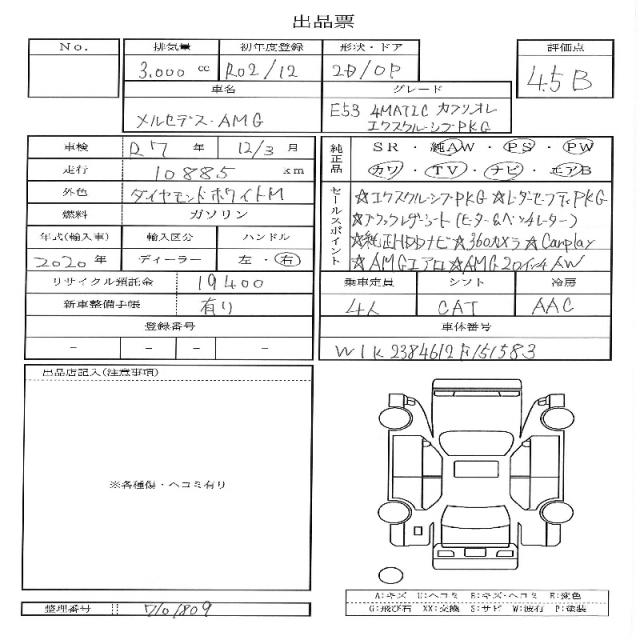 出品票
No.
排気量 初年度登録 形状・ドア 評価点
3,000 cc R02/12 2D/OP 4.5 B
車名 グレード
メルセデス・AMG
E53 4MATIC カブリオレ
エクスクルーシブPKG
車検 R7 年 12/3 月
走行 10885 km
外色 ダイヤモンドホワイトM
燃料 ガソリン
年式(輸入車) 輸入区分 ハンドル
2020 年 ディーラー 左・右
リサイクル預託金 19400
新車整備手帳 有り
登録番号
－ － － －
純正品
SR・純AW・PS・PW
カワ・TV・ナビ・エアB
セールスポイント
☆エクスクルーシブPKG ☆レーダーセーフティPKG
☆ブラックレザーシート(ヒーター&ベンチレーター)
☆純正HDDナビ☆360カメラ☆Carplay
☆AMGエアロ☆AMG20インチAW
乗車定員 シフト 冷房
4人 CAT AAC
車体番号
W1K2384612F151583
出品店記入(注意事項)
※各種傷・ヘコミ有り
A:キズ U:ヘコミ B:キズ・ヘコミ E:変色
G:飛び石 XX:交換 S:サビ W:波打 P:塗装
整理番号 7/01809